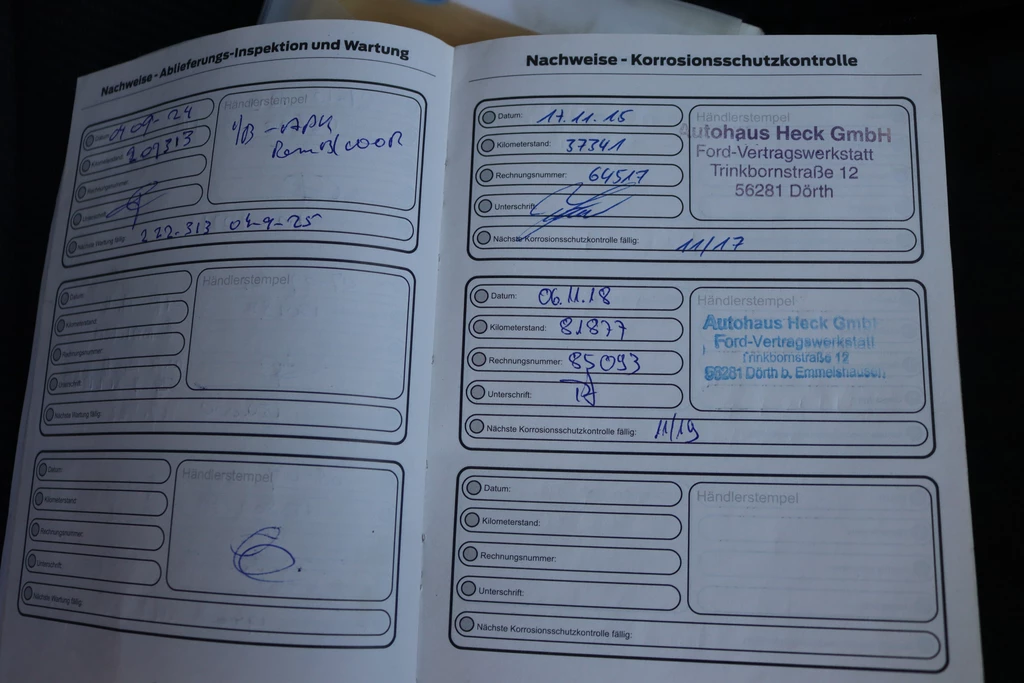 Nachweise - Ablieferungs-Inspektion und Wartung
Datum 04-09-24
Kilometerstand 207313
Rechnungsnummer
Unterschrift
Nächste Wartung fällig: 222-313 04-9-25
Händlerstempel
Datum
Kilometerstand
Rechnungsnummer
Unterschrift
Nächste Wartung fällig:
Händlerstempel
Datum
Kilometerstand
Rechnungsnummer
Unterschrift
Nächste Wartung fällig:
Händlerstempel
Nachweise - Korrosionsschutzkontrolle
Datum: 17.11.15
Kilometerstand: 37341
Rechnungsnummer: 64517
Unterschrift:
Nächste Korrosionsschutzkontrolle fällig: 11/17
Händlerstempel
Autohaus Heck GmbH
Ford-Vertragswerkstatt
Trinkbornstraße 12
56281 Dörth
Datum: 06.11.18
Kilometerstand: 81877
Rechnungsnummer: 85093
Unterschrift:
Nächste Korrosionsschutzkontrolle fällig: 11/19
Händlerstempel
Autohaus Heck GmbH
Ford-Vertragswerkstatt
Trinkbornstraße 12
56281 Dörth b. Emmelshausen
Datum:
Kilometerstand:
Rechnungsnummer:
Unterschrift:
Nächste Korrosionsschutzkontrolle fällig:
Händlerstempel